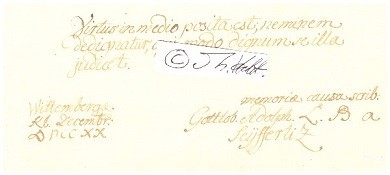 Virtus in medio posita est, neminem
dedignatur, modo dignum se illa
judicet.
Wittembergæ
Kl. Decembr.
MDCCXX
memoriæ causa scrib.
Gottlob Adolph L. B a
Seyffertiz